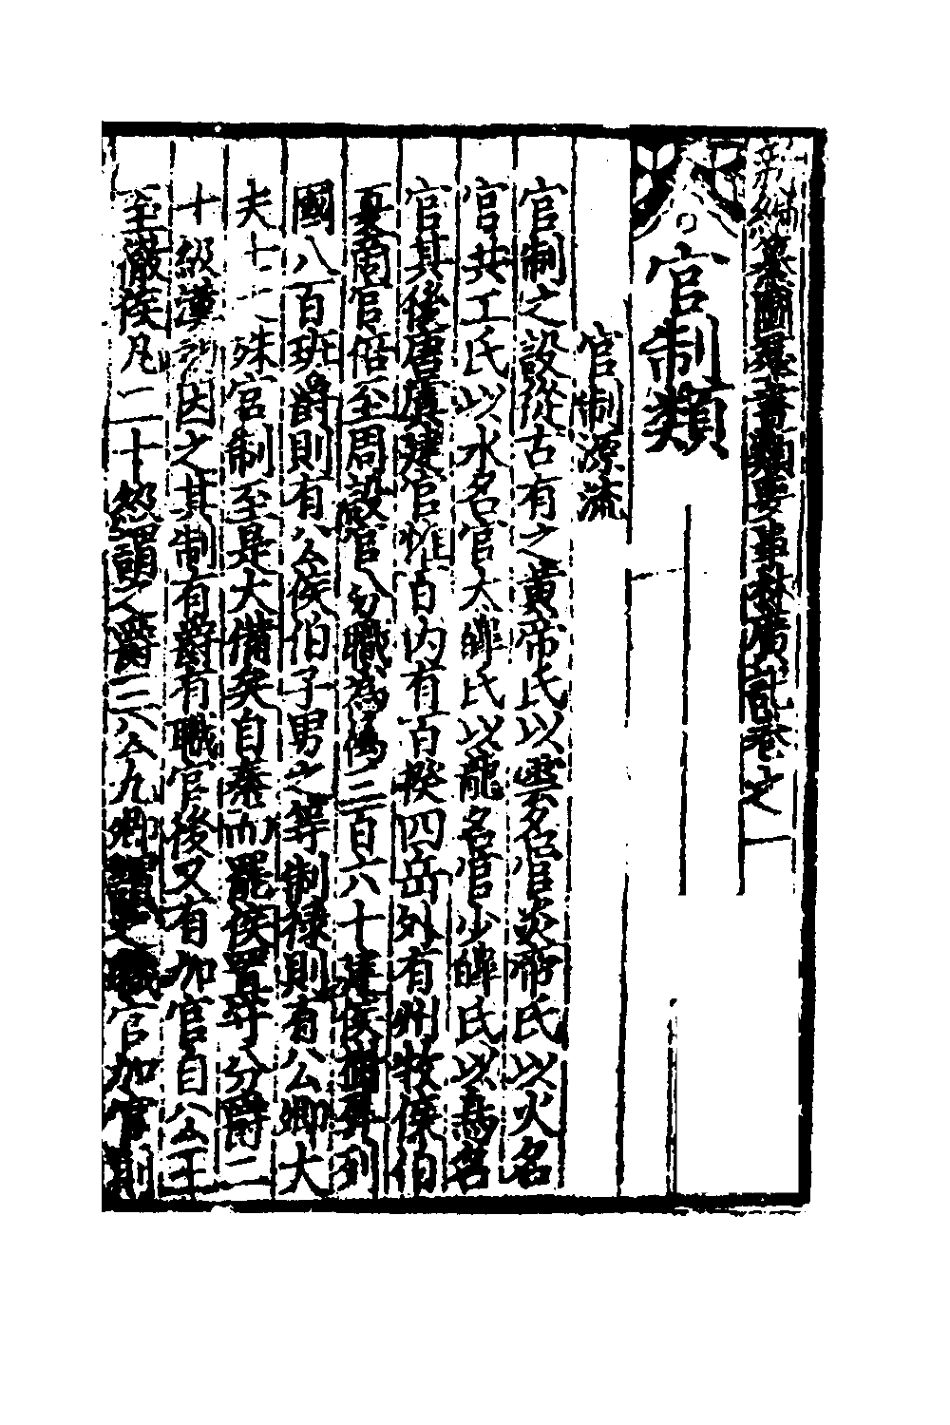 新編纂圖羣書類要事林廣記卷之一
官制類
官制源流
官制之設從古有之黃帝氏以雲名官炎帝氏以火名
官共工氏以水名官太皥氏以龍名官少皥氏以鳥名
官其後唐虞建官惟百內有百揆四岳外有州牧侯伯
夏商官倍至周設官分職為屬三百六十建侯樹屏列
國八百班爵則有公侯伯子男之等制祿則有公卿大
夫士之殊官制至是大備矣自秦而罷侯置守分爵二
十級漢初因之其制有爵有職官後又有加官自公王
至徹侯凡二十級謂之爵三公九卿謂之職官加官則